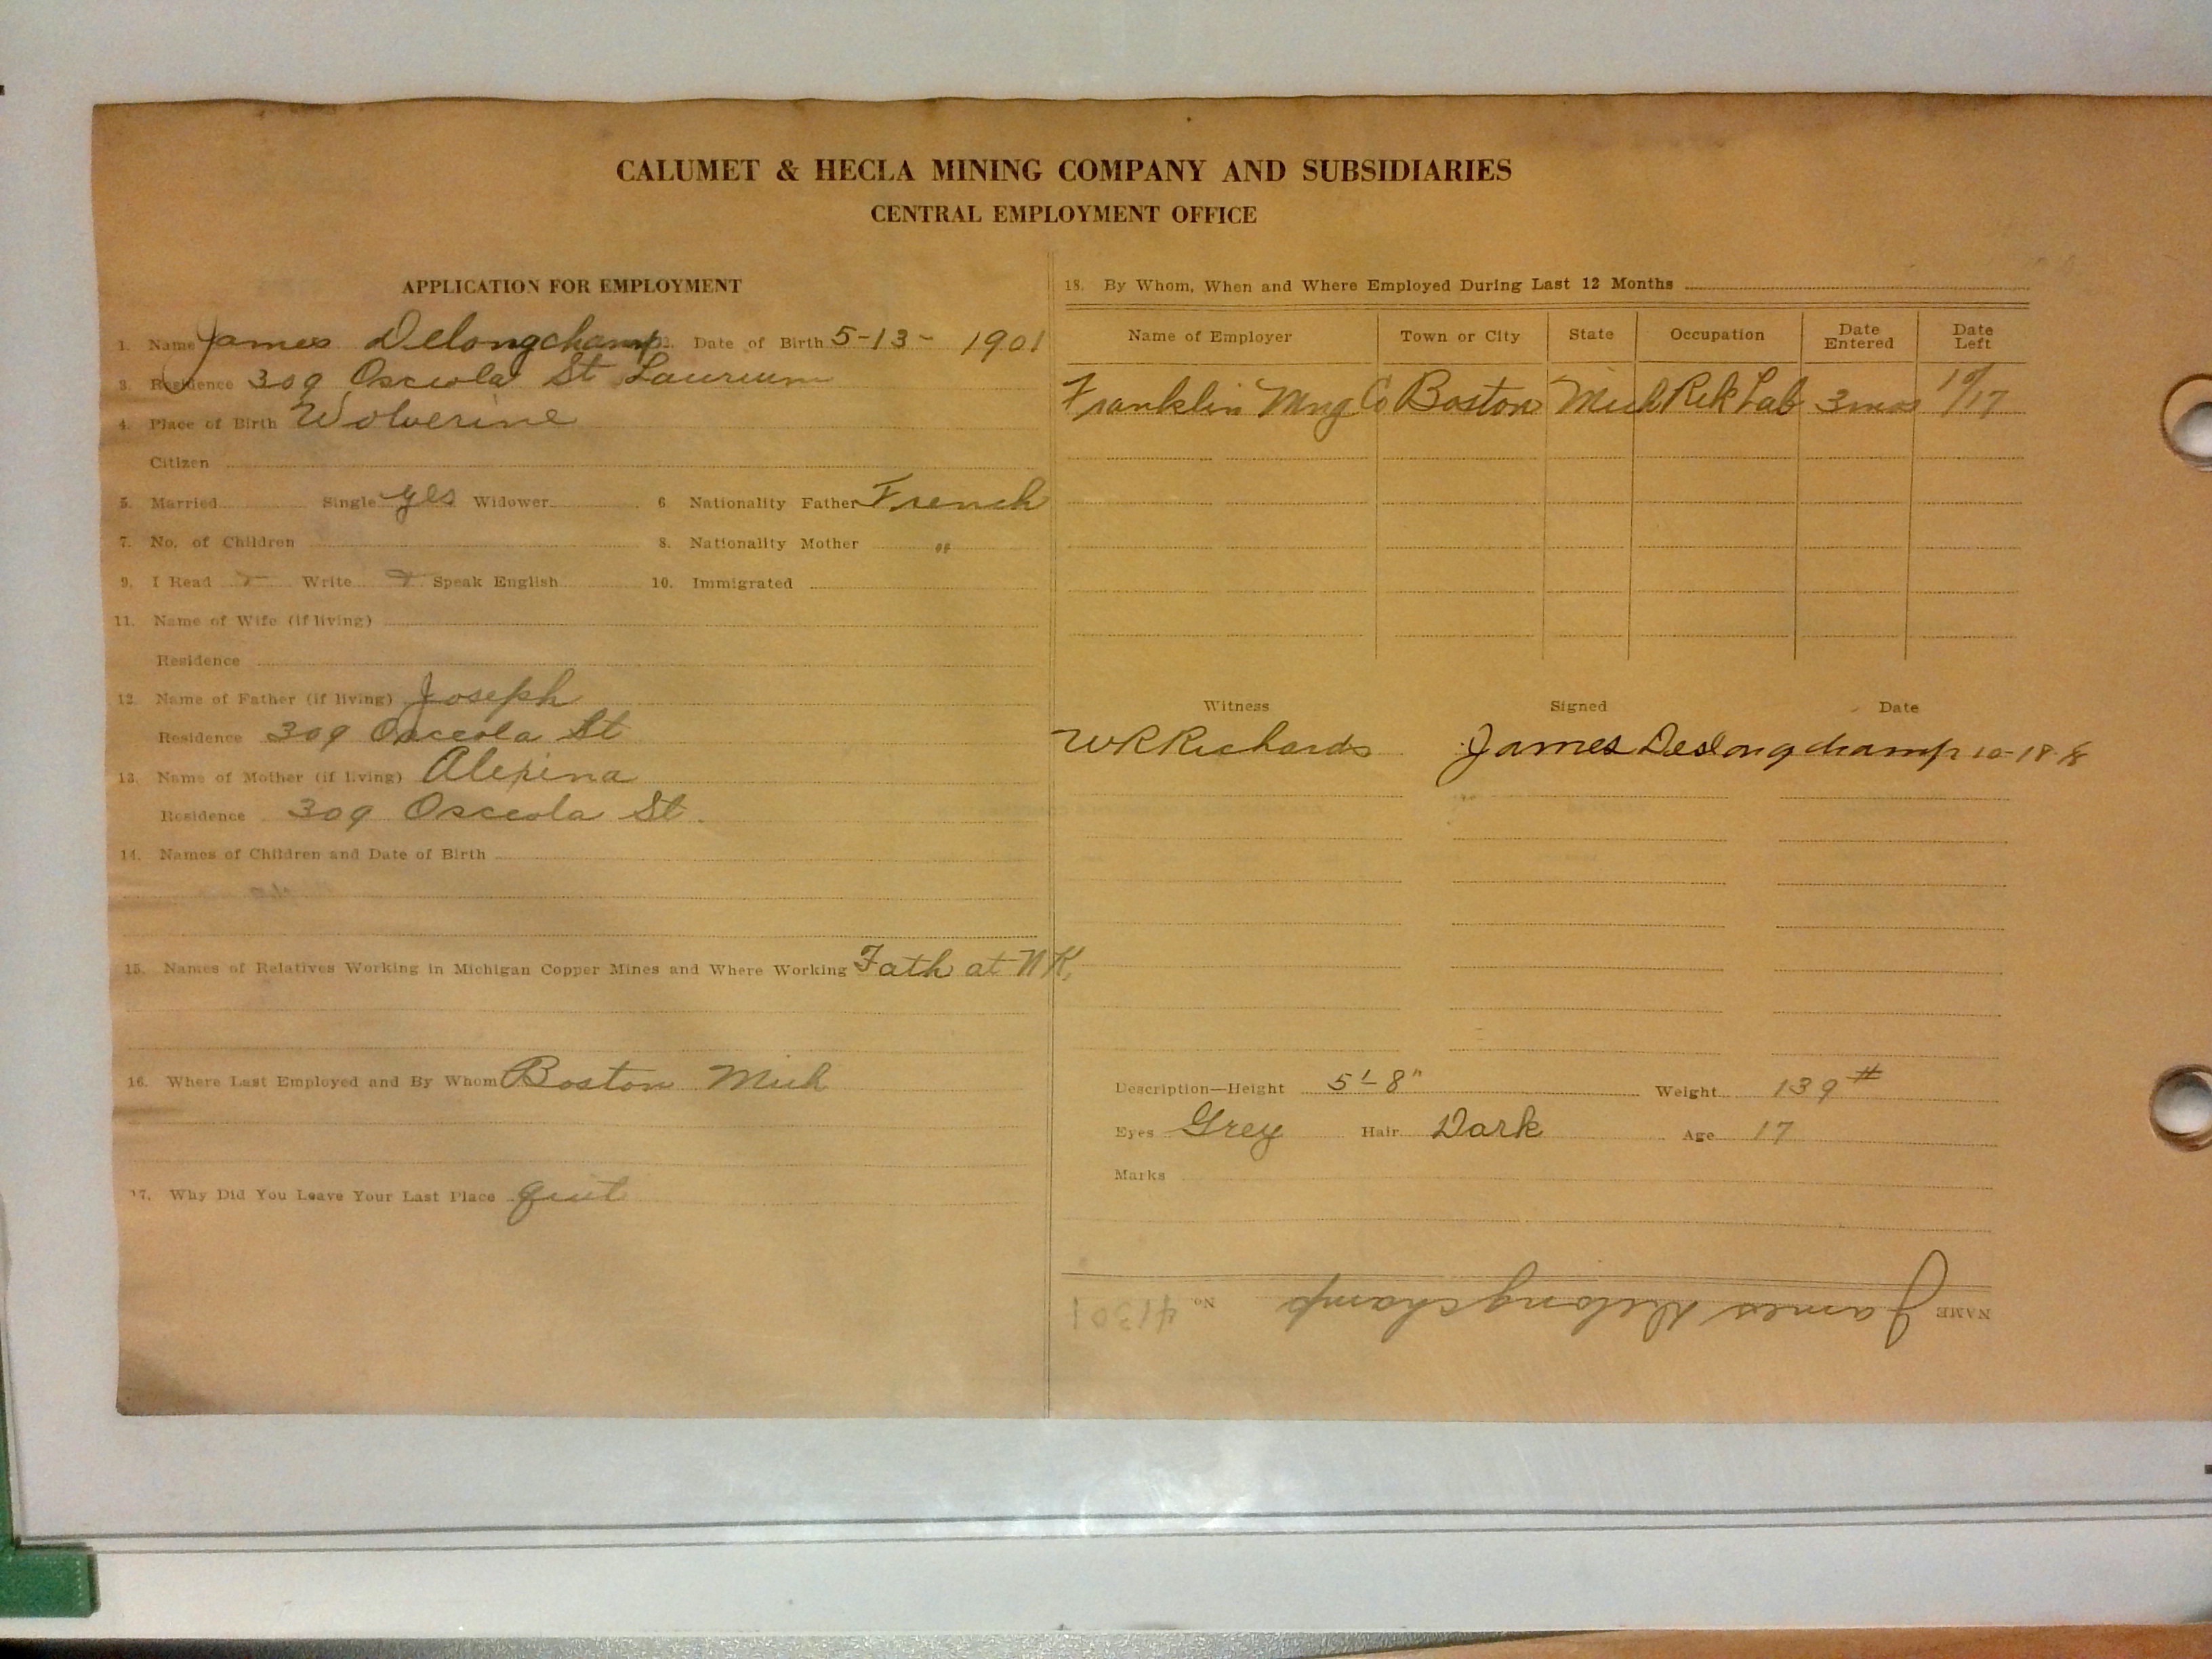 CALUMET & HECLA MINING COMPANY AND SUBSIDIARIES
CENTRAL EMPLOYMENT OFFICE
APPLICATION FOR EMPLOYMENT
1. Name James Delongchamp 2. Date of Birth 5-13- 1901
3. Residence 309 Osceola St Laurium
4. Place of Birth Wolverine
Citizen
5. Married Single yes Widower 6 Nationality Father French
7. No. of Children 8. Nationality Mother "
9. I Read Write Speak English 10. Immigrated
11. Name of Wife (if living)
Residence
12. Name of Father (if living) Joseph
Residence 309 Osceola St
13. Name of Mother (if living) Alexina
Residence 309 Osceola St.
14. Names of Children and Date of Birth
15. Names of Relatives Working in Michigan Copper Mines and Where Working Fath at N K.
16. Where Last Employed and By Whom Boston Mich
17. Why Did You Leave Your Last Place quit
18. By Whom, When and Where Employed During Last 12 Months
Name of Employer Town or City State Occupation Date Entered Date Left
Franklin Mng Co Boston Mich Rck Lab 3 mos 10/17
Witness Signed Date
WR Richards James Deslongchamp 10-18-8
Description—Height 5'-8" Weight 139 #
Eyes Grey Hair Dark Age 17
Marks
NAME James Delongchamp No. 41301